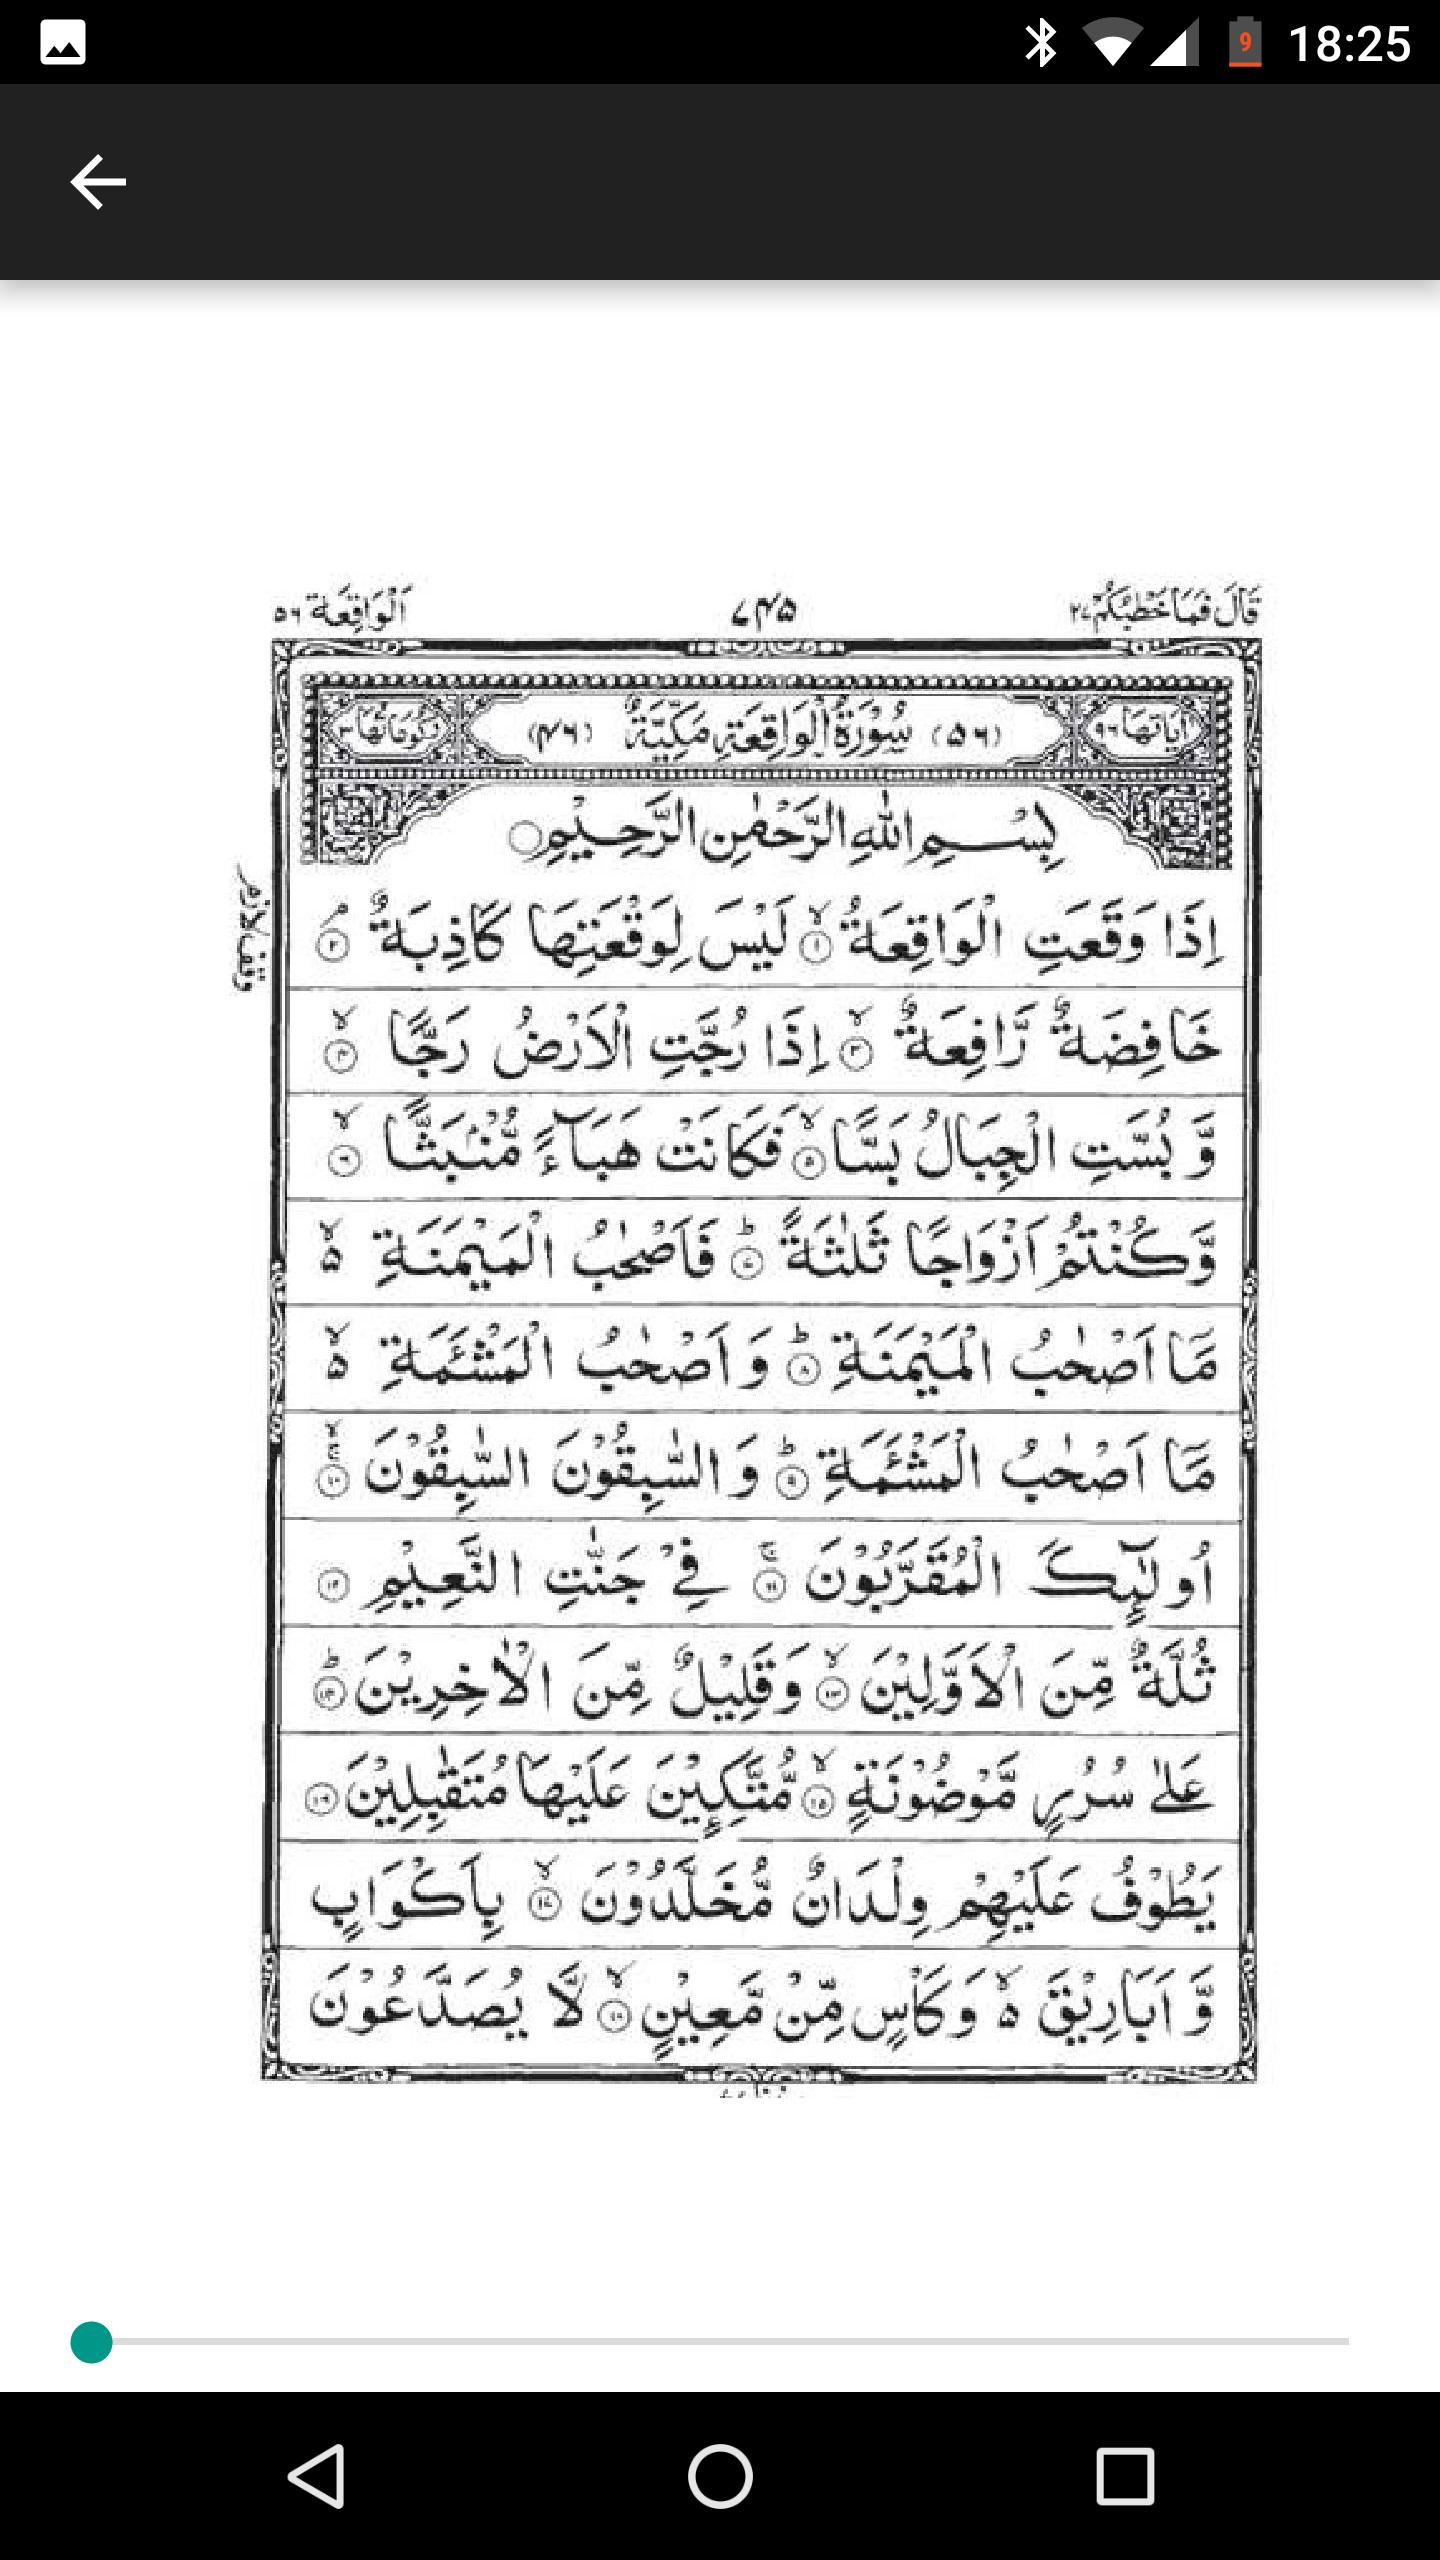 9 18:25
قَالَ فَمَا خَطْبُكُمْ ٢٧ ٧٤٥ اَلْوَاقِعَة ٥٦
اٰيَاتُهَا ٩٦ (٥٦) سُوْرَةُ الْوَاقِعَةِ مَكِّيَّةٌ (٤٦) رُكُوْعَاتُهَا ٣
بِسْمِ اللهِ الرَّحْمٰنِ الرَّحِيْمِ
اِذَا وَقَعَتِ الْوَاقِعَةُ ۙ﴿١﴾ لَيْسَ لِوَقْعَتِهَا كَاذِبَةٌ ۘ﴿٢﴾
وقف لازم
خَافِضَةٌ رَّافِعَةٌ ۙ﴿٣﴾ اِذَا رُجَّتِ الْاَرْضُ رَجًّا ۙ﴿٤﴾
وَّ بُسَّتِ الْجِبَالُ بَسًّا ۙ﴿٥﴾ فَكَانَتْ هَبَآءً مُّنْۢبَثًّا ۙ﴿٦﴾
وَّكُنْتُمْ اَزْوَاجًا ثَلٰثَةً ؕ﴿٧﴾ فَاَصْحٰبُ الْمَيْمَنَةِ ۙ۬
مَاۤ اَصْحٰبُ الْمَيْمَنَةِ ؕ﴿٨﴾ وَ اَصْحٰبُ الْمَشْئَمَةِ ۙ۬
مَاۤ اَصْحٰبُ الْمَشْئَمَةِ ؕ﴿٩﴾ وَ السّٰبِقُوْنَ السّٰبِقُوْنَ ﴿١٠﴾
اُولٰٓئِكَ الْمُقَرَّبُوْنَ ۚ﴿١١﴾ فِيْ جَنّٰتِ النَّعِيْمِ ﴿١٢﴾
ثُلَّةٌ مِّنَ الْاَوَّلِيْنَ ۙ﴿١٣﴾ وَقَلِيْلٌ مِّنَ الْاٰخِرِيْنَ ؕ﴿١٤﴾
عَلٰى سُرُرٍ مَّوْضُوْنَةٍ ۙ﴿١٥﴾ مُّتَّكِـِٕيْنَ عَلَيْهَا مُتَقٰبِلِيْنَ ﴿١٦﴾
يَطُوْفُ عَلَيْهِمْ وِلْدَانٌ مُّخَلَّدُوْنَ ۙ﴿١٧﴾ بِاَكْوَابٍ
وَّ اَبَارِيْقَ ۙ۬ وَكَاْسٍ مِّنْ مَّعِيْنٍ ۙ﴿١٨﴾ لَّا يُصَدَّعُوْنَ